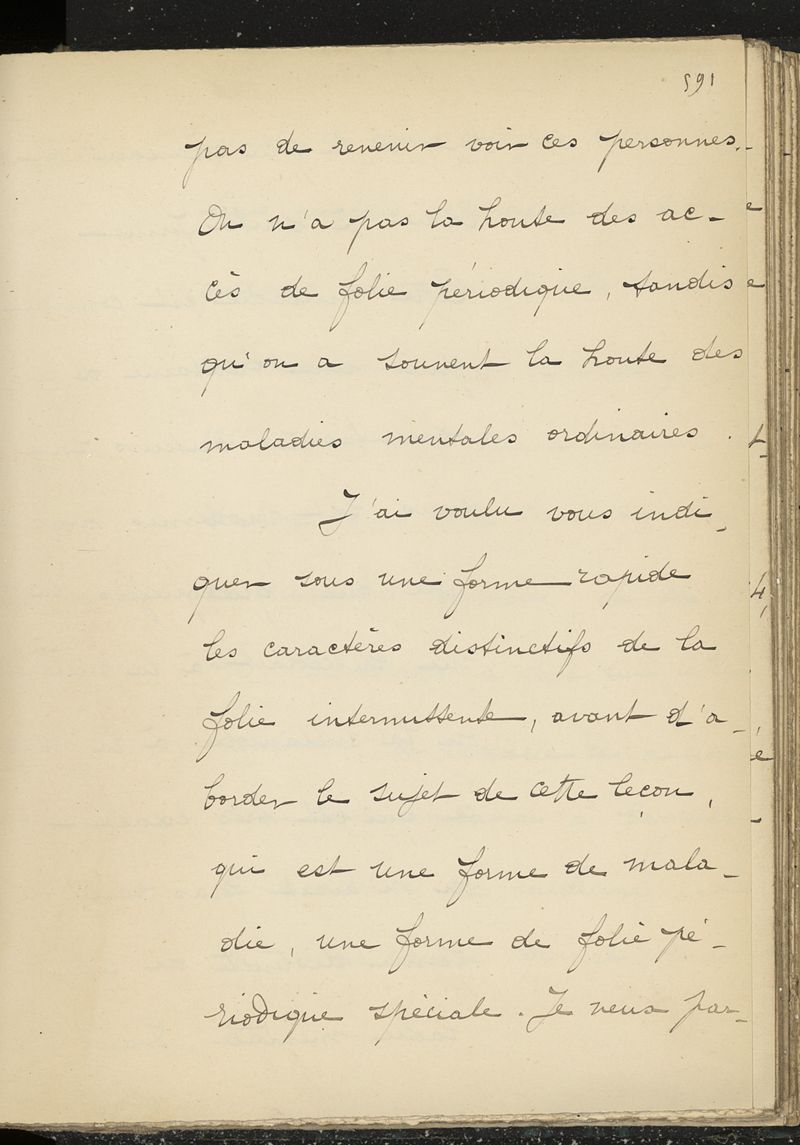 591
pas de revenir voir ces personnes.
On n'a pas la honte des ac-
cès de folie périodique, tandis
qu'on a souvent la honte des
maladies mentales ordinaires.
J'ai voulu vous indi-
quer sous une forme rapide
les caractères distinctifs de la
folie intermittente, avant d'a-
border le sujet de cette leçon,
qui est une forme de mala-
die, une forme de folie pé-
riodique spéciale. Je veux par-